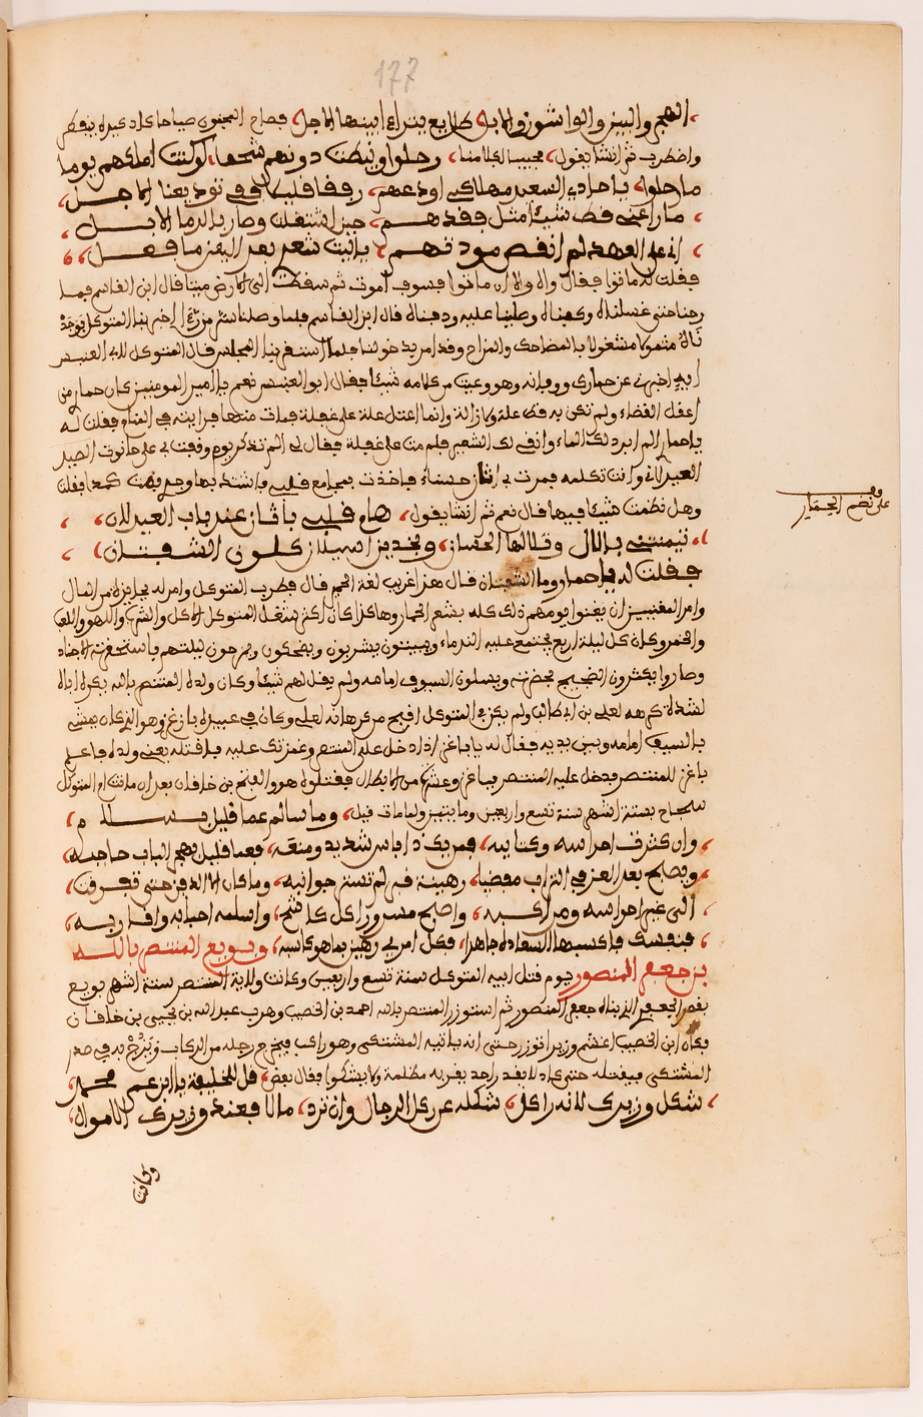 177
الهجر والبين والواشون والابل طلايع يتراءا بينها الاجل فصاح المجنون صياحا كاد كبده ينفطر
واضطرب ثم انشا يقول مجيبا لكلامنا رحلوا ونيطت دونهم لو كنت املكهم يوما
ما رحلوا يا حادي العيس مهلا كي اودعهم رفقا قليلا ففي توديعنا الاجل
ما راعني قط شيئا مثل فقدهم حين استقلت وصار بالدما الابل
اني على العهد لم انقض مودتهم يا ليت شعري بعد البين ما فعلوا
فقلت له ماتوا فقال والاه والاه ان ماتوا فسوف اموت ثم سقط الى الارض ميتا قال ابن القاسم فما
برحنا حتى غسلناه وكفناه وصلينا عليه ودفناه قال ابن القاسم فلما وصلنا اخبر بنا المتوكل فوجد
ناه مشغولا بالمضاحك والمزاح وقد امر بدخولنا فلما استقر بنا المجلس قال المتوكل لابي العنبس
اي اخبرني عن حماري ووفاته وهو وعيت من كلامه شيئا فقال ابو العنبس نعم يا امير المومنين كان حماري من
اعقل القضاة ولم تكن به قط علة ولا زلة وانما اعتل علة على غفلة فمات منها فرايته في المنام فقلت له
يا حمار الم ابرد لك الماء وانقي لك الشعير فلم مت على غفلة فقال لي الم تذكر يوم وقفت بي على حانوت الصيد
العيدلاني وانت تكلمه فمرت بي اتان حسناء فاخذت بمجامع قلبي فاشتد بها وجدي فمت كمدا فقلت
وهل نظمت شيئا فيها قال نعم ثم انشا يقول هام قلبي باتان عند باب العيدلان
تيمتني بالدال وثناياها الحسان وبخدين اسيلان كلون الشقبان
فقلت له يا حمار وما الشقبان قال هذا غريب لغة الحمر قال فطرب المتوكل وامر له بجايزة من المال
وامر المغنيين ان يغنوا يومهم ذلك كله بشعر الحمار وهكذا كان اكثر شغل المتوكل الاكل والشرب واللهو واللعب
والخمر وكان كل ليلة اربع يجتمع عليه الندماء ويبيتون يشربون ويضحكون ويمزحون ليلتهم
وصاروا يكثرون الضجيج بحضرته ويسلون السيوف امامه ولم يقل لهم شيئا وكان ولده المنتصر بالله يكره اباه
لشدة كرهه لعلي بن ابي طالب ولم يكن في المتوكل اقبح من كرهانه لعلي وكان في عبيده باغر وهو الذي كان يمشي
بالسيف امامه وبين يديه فقال له يا باغر اذا دخل علي المنتصر وغمزتك عليه فاقتله يعني ولده فاعلم
باغر للمنتصر فدخل عليه المنتصر بباغر وعشرة من الابطال فقتلوه هو والفتح بن خاقان بعد ان ماتت ام المتوكل
شجاع بستة اشهر سنة تسع واربعين وما يتين ولما مات قيل وما سالم عما قليل بسالم
وان كثرت احراسه وكتايبه فمن يك ذا باس شديد ومنعة فعما قليل يهجر الباب حاجبه
ويصبح بعد العز في التراب مفضيا رهينة قبر لم تستر جوانبه وما كان الا الدفن حتى تفرقت
الى غيره احراسه ومراكبه واصبح مسرورا كل كاشح واسلمه احبابه واقاربه
فنفسك فاكسبها السعادة جاهدا فكل امري رهين بما هو كاسبه وبويع المنتصر بالله
بن جعفر المنصور يوم قتل ابيه المتوكل سنة تسع واربعين وكانت ولاية المنتصر ستة اشهر بويع
بقصر الجعفري الذي بناه جعفر المنصور ثم استوزر المنتصر بالله احمد بن الخصيب وهرب عبد الله بن يحيى بن خاقان
وكان ابن الخصيب اغشم وزير انوزر حتى انه ياتيه المشتكي وهو راكب فيخرج رجله من الركاب ويزج به في صدر
المشتكي فيقتله حتى كاد لا يقدر احد يقربه مظلمة ولا يشكوا فقال بعض قل للخليفة يا ابن عم محمد
شكل وزيرك لانه راكل شكله عن ركل الرجال وان ترد مالا فعند وزيرك الاموال
وكانت
قف على نظم الحمار